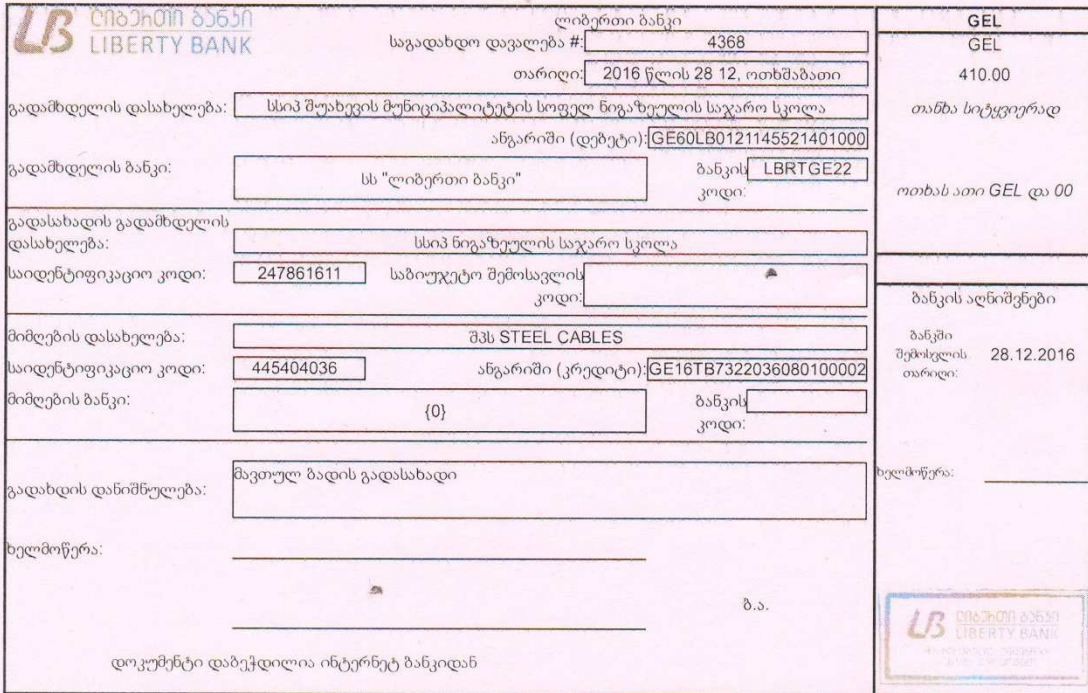 ლიბერთი ბანკი
LIBERTY BANK
ლიბერთი ბანკი
საგადახდო დავალება #: 4368
თარიღი: 2016 წლის 28 12, ოთხშაბათი
გადამხდელის დასახელება: სსიპ შუახევის მუნიციპალიტეტის სოფელ ნიგაზეულის საჯარო სკოლა
ანგარიში (დებეტი): GE60LB0121145521401000
გადამხდელის ბანკი: სს "ლიბერთი ბანკი" ბანკის კოდი: LBRTGE22
გადასახადის გადამხდელის
დასახელება: სსიპ ნიგაზეულის საჯარო სკოლა
საიდენტიფიკაციო კოდი: 247861611 საბიუჯეტო შემოსავლის
კოდი:
მიმღების დასახელება: შპს STEEL CABLES
საიდენტიფიკაციო კოდი: 445404036 ანგარიში (კრედიტი): GE16TB7322036080100002
მიმღების ბანკი: {0} ბანკის
კოდი:
გადახდის დანიშნულება: მავთულ ბადის გადასახადი
ხელმოწერა:
ბ.ა.
დოკუმენტი დაბეჭდილია ინტერნეტ ბანკიდან
GEL
GEL
410.00
თანხა სიტყვიერად
ოთხას ათი GEL და 00
ბანკის აღნიშვნები
ბანკში
შემოსვლის 28.12.2016
თარიღი:
ხელმოწერა:
ლიბერთი ბანკი
LIBERTY BANK